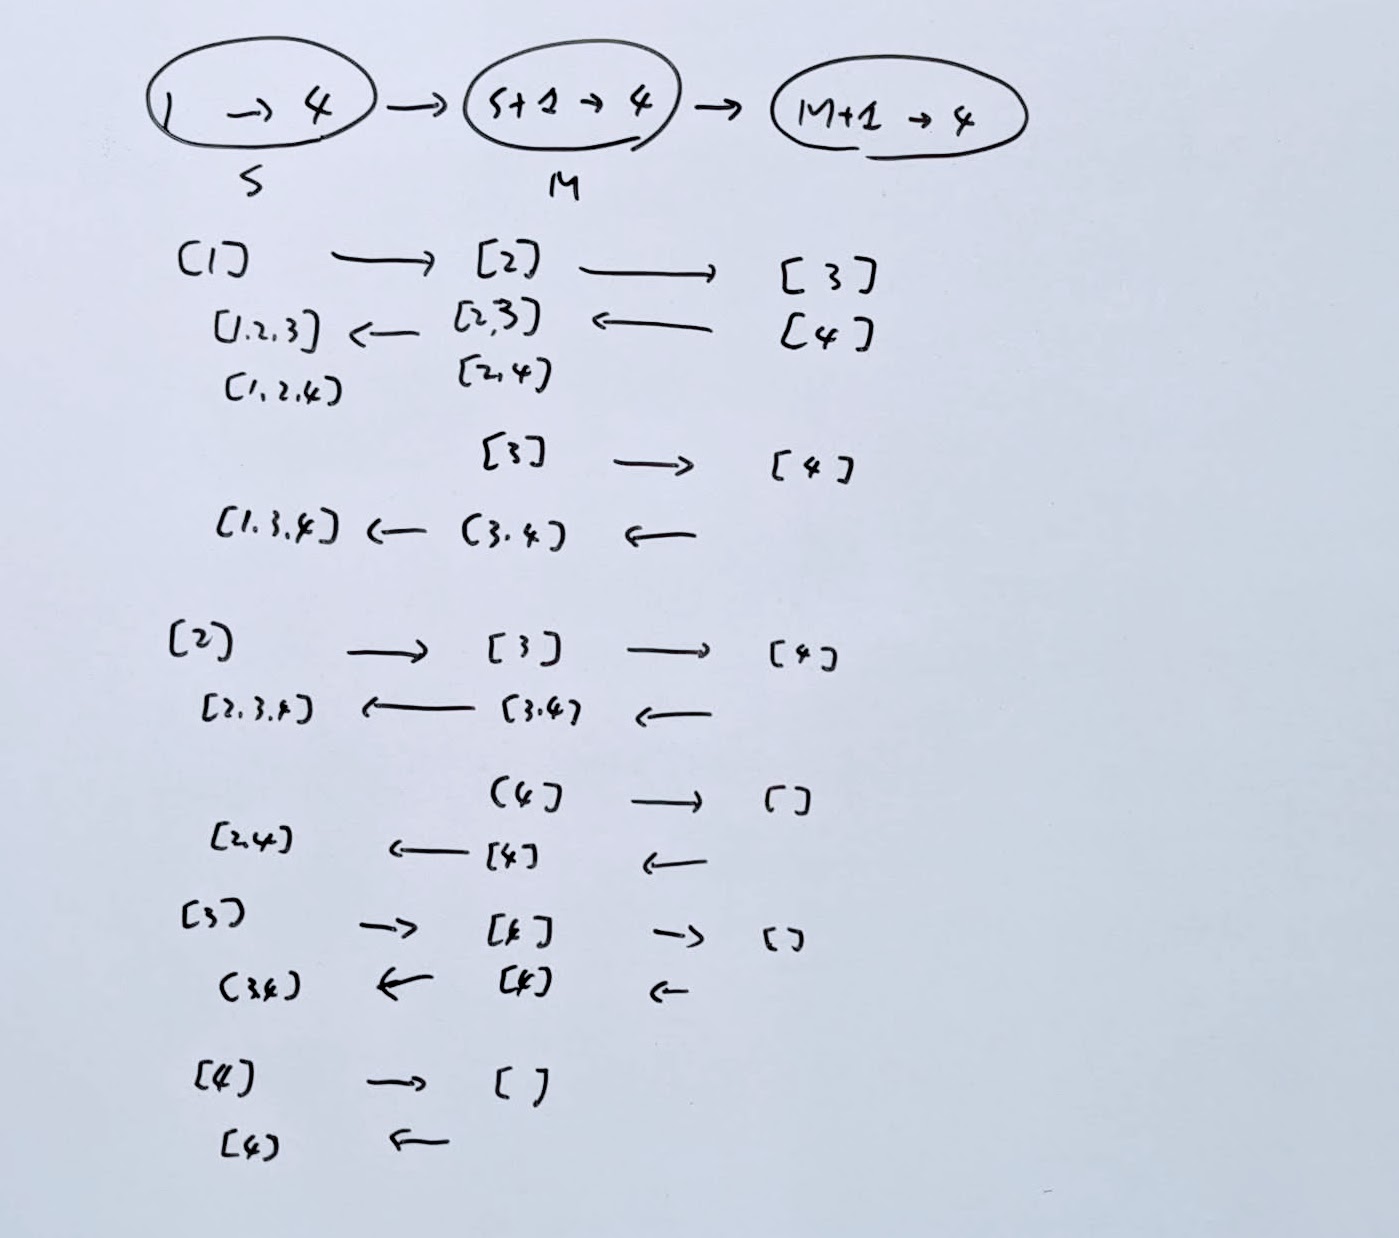 1 → 4 → S+1 → 4 → M+1 → 4
S M
[1] → [2] → [3]
[1.2.3] ← [2,3] ← [4]
[1,2,4] [2,4]
[3] → [4]
[1.3.4] ← [3.4] ←
[2] → [3] → [4]
[2.3.4] ← [3.4] ←
[4] → []
[2,4] ← [4] ←
[3] → [4] → []
[34] ← [4] ←
[4] → []
[4] ←